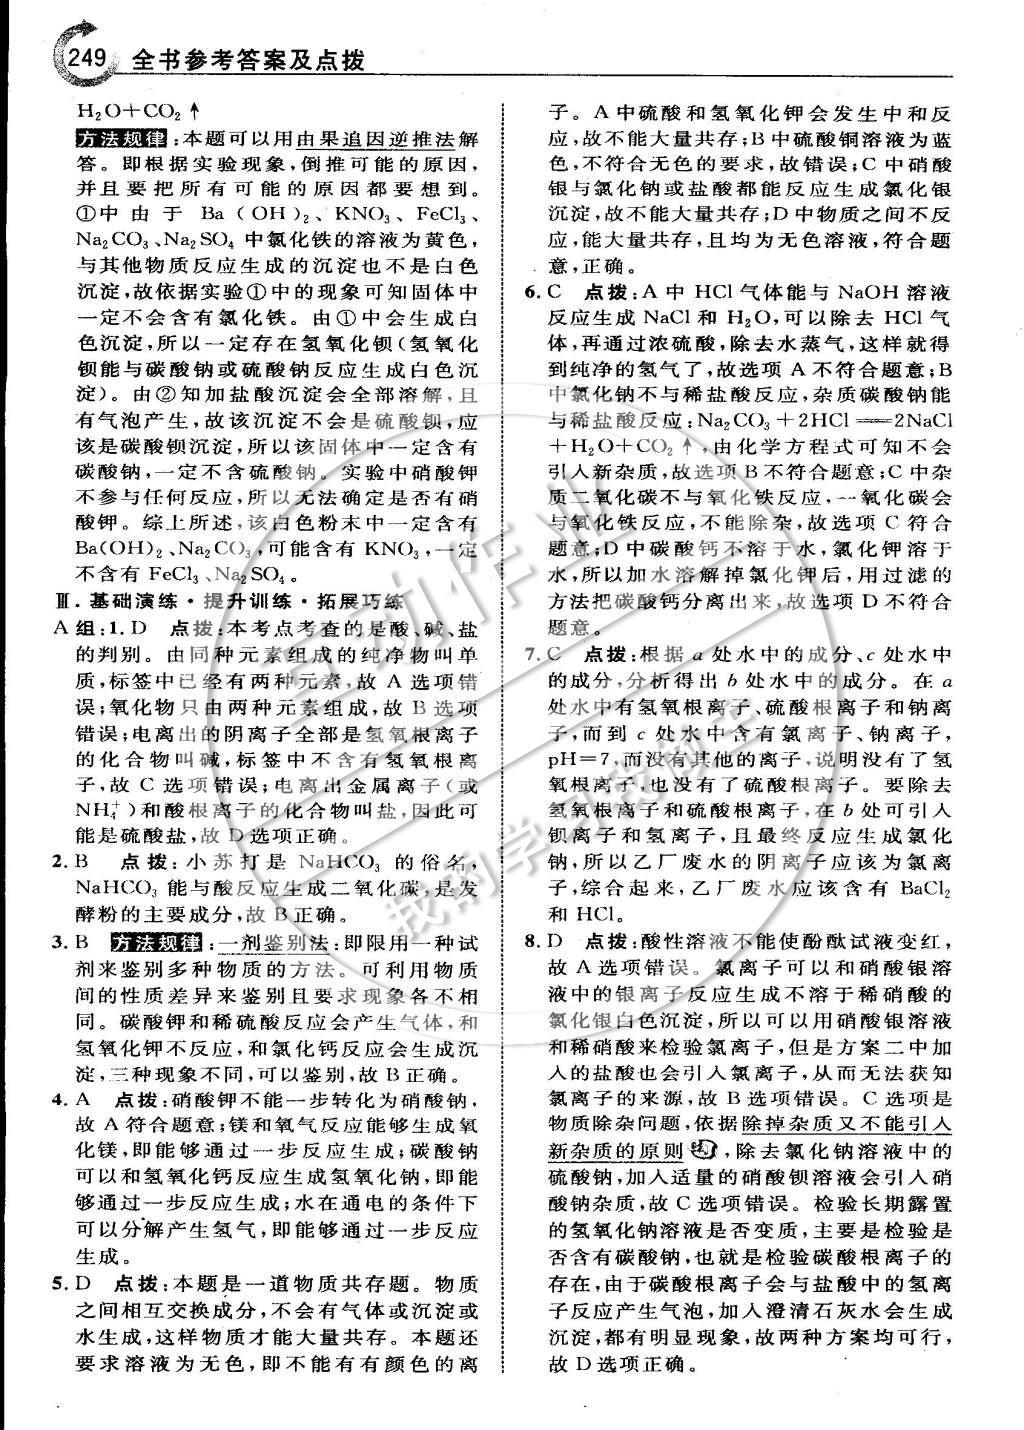 249 全书参考答案及点拨
H₂O+CO₂↑
方法规律:本题可以用由果追因逆推法解
答。即根据实验现象,倒推可能的原因,
并且要把所有可能的原因都要想到。
①中由于 Ba(OH)₂、KNO₃、FeCl₃、
Na₂CO₃、Na₂SO₄ 中氯化铁的溶液为黄色,
与其他物质反应生成的沉淀也不是白色
沉淀,故依据实验①中的现象可知固体中
一定不会含有氯化铁。由①中会生成白
色沉淀,所以一定存在氢氧化钡(氢氧化
钡能与碳酸钠或硫酸钠反应生成白色沉
淀)。由②知加盐酸沉淀会全部溶解,且
有气泡产生,故该沉淀不会是硫酸钡,应
该是碳酸钡沉淀,所以该固体中一定含有
碳酸钠,一定不含硫酸钠。实验中硝酸钾
不参与任何反应,所以无法确定是否有硝
酸钾。综上所述,该白色粉末中一定含有
Ba(OH)₂、Na₂CO₃,可能含有 KNO₃,一定
不含有 FeCl₃、Na₂SO₄。
Ⅲ.基础演练·提升训练·拓展巧练
A组:1.D 点拨:本考点考查的是酸、碱、盐
的判别。由同种元素组成的纯净物叫单
质,标签中已经有两种元素,故 A 选项错
误;氧化物只由两种元素组成,故 B 选项
错误;电离出的阴离子全部是氢氧根离子
的化合物叫碱,标签中不含有氢氧根离
子,故 C 选项错误;电离出金属离子(或
NH₄⁺)和酸根离子的化合物叫盐,因此可
能是硫酸盐,故 D 选项正确。
2.B 点拨:小苏打是 NaHCO₃ 的俗名,
NaHCO₃ 能与酸反应生成二氧化碳,是发
酵粉的主要成分,故 B 正确。
3.B 方法规律:一剂鉴别法:即限用一种试
剂来鉴别多种物质的方法。可利用物质
间的性质差异来鉴别且要求现象各不相
同。碳酸钾和稀硫酸反应会产生气体,和
氢氧化钾不反应,和氯化钙反应会生成沉
淀,三种现象不同,可以鉴别,故 B 正确。
4.A 点拨:硝酸钾不能一步转化为硝酸钠,
故 A 符合题意;镁和氧气反应能够生成氧
化镁,即能够通过一步反应生成;碳酸钠
可以和氢氧化钙反应生成氢氧化钠,即能
够通过一步反应生成;水在通电的条件下
可以分解产生氢气,即能够通过一步反应
生成。
5.D 点拨:本题是一道物质共存题。物质
之间相互交换成分,不会有气体或沉淀或
水生成,这样物质才能大量共存。本题还
要求溶液为无色,即不能有有颜色的离
子。A 中硫酸和氢氧化钾会发生中和反
应,故不能大量共存;B 中硫酸铜溶液为蓝
色,不符合无色的要求,故错误;C 中硝酸
银与氯化钠或盐酸都能反应生成氯化银
沉淀,故不能大量共存;D 中物质之间不反
应,能大量共存,且均为无色溶液,符合题
意,正确。
6.C 点拨:A 中 HCl 气体能与 NaOH 溶液
反应生成 NaCl 和 H₂O,可以除去 HCl 气
体,再通过浓硫酸,除去水蒸气,这样就得
到纯净的氢气了,故选项 A 不符合题意;B
中氯化钠不与稀盐酸反应,杂质碳酸钠能
与稀盐酸反应:Na₂CO₃+2HCl══2NaCl
+H₂O+CO₂↑,由化学方程式可知不会
引入新杂质,故选项 B 不符合题意;C 中杂
质二氧化碳不与氧化铁反应,一氧化碳会
与氧化铁反应,不能除杂,故选项 C 符合
题意;D 中碳酸钙不溶于水,氯化钾溶于
水,所以加水溶解掉氯化钾后,用过滤的
方法把碳酸钙分离出来,故选项 D 不符合
题意。
7.C 点拨:根据 a 处水中的成分、c 处水中
的成分,分析得出 b 处水中的成分。在 a
处水中有氢氧根离子、硫酸根离子和钠离
子,而到 c 处水中含有氯离子、钠离子,
pH=7,而没有其他的离子,说明没有了氢
氧根离子,也没有了硫酸根离子。要除去
氢氧根离子和硫酸根离子,在 b 处可引入
钡离子和氢离子,且最终反应生成氯化
钠,所以乙厂废水的阴离子应该为氯离
子,综合起来,乙厂废水应该含有 BaCl₂
和 HCl。
8.D 点拨:酸性溶液不能使酚酞试液变红,
故 A 选项错误。氯离子可以和硝酸银溶
液中的银离子反应生成不溶于稀硝酸的
氯化银白色沉淀,所以可以用硝酸银溶液
和稀硝酸来检验氯离子,但是方案二中加
入的盐酸也会引入氯离子,从而无法获知
氯离子的来源,故 B 选项错误。C 选项是
物质除杂问题,依据除掉杂质又不能引入
新杂质的原则,除去氯化钠溶液中的
硫酸钠,加入适量的硝酸钡溶液会引入硝
酸钠杂质,故 C 选项错误。检验长期露置
的氢氧化钠溶液是否变质,主要是检验是
否含有碳酸钠,也就是检验碳酸根离子的
存在,由于碳酸根离子会与盐酸中的氢离
子反应产生气泡,加入澄清石灰水会生成
沉淀,都有明显现象,故两种方案均可行,
故 D 选项正确。
互动作业
我的学习我做主